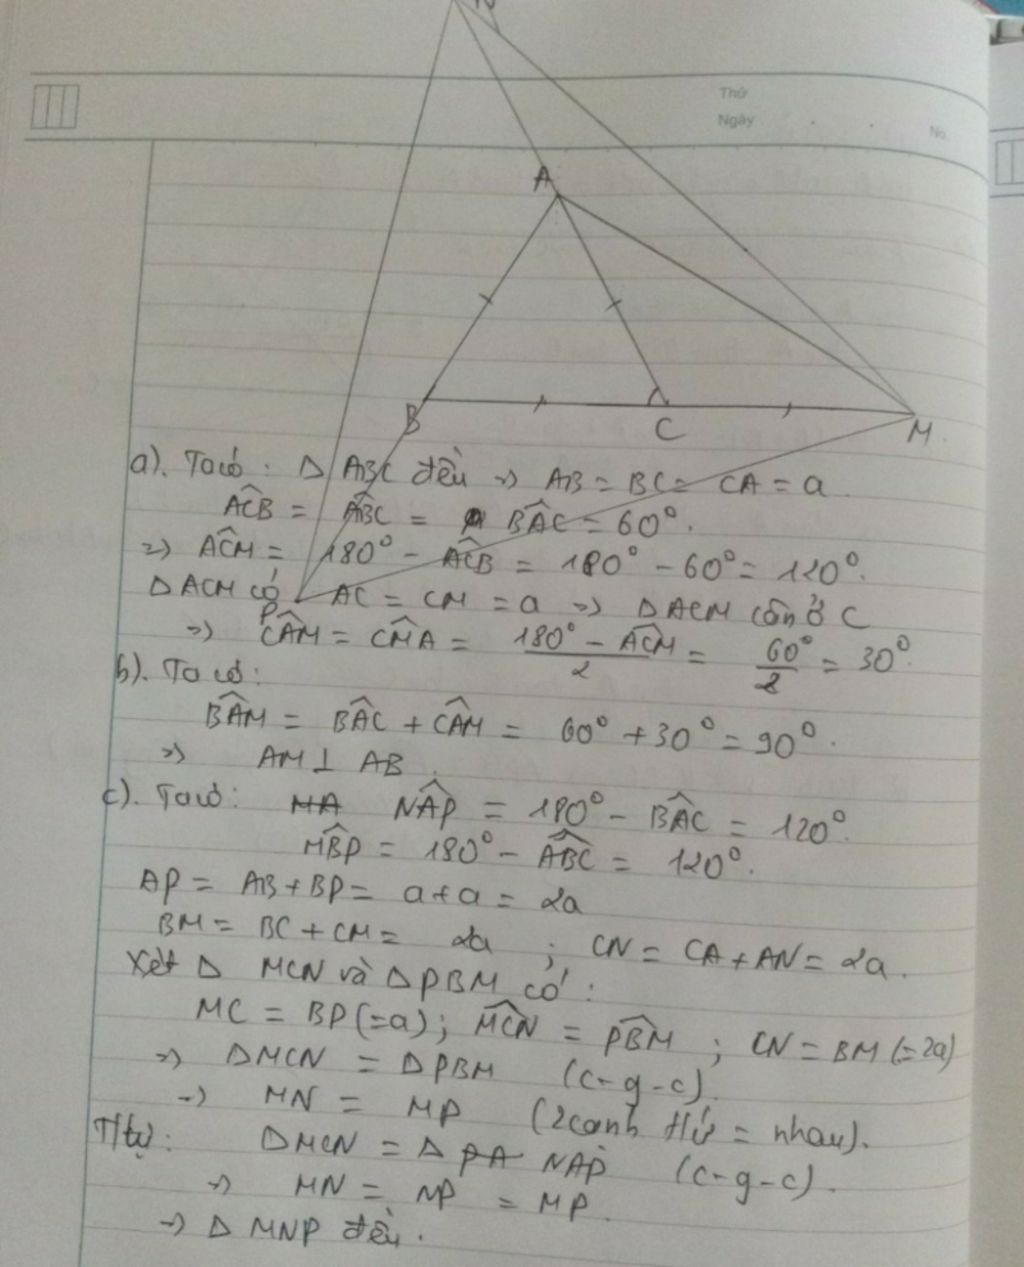 N
Thứ
Ngày
No.
A
B
C
M
P
a). Ta có: Δ ABC đều => AB = BC = CA = a
ACB^ = ABC^ = BAC^ = 60°.
=> ACM^ = 180° - ACB^ = 180° - 60° = 120°.
Δ ACM có AC = CM = a => Δ ACM cân ở C
=> CAM^ = CMA^ = (180° - ACM^)/2 = 60°/2 = 30°.
b). Ta có:
BAM^ = BAC^ + CAM^ = 60° + 30° = 90°.
=> AM ⊥ AB.
c). Ta có: MA NAP^ = 180° - BAC^ = 120°.
MBP^ = 180° - ABC^ = 120°.
AP = AB + BP = a + a = 2a
BM = BC + CM = 2a ; CN = CA + AN = 2a.
Xét Δ MCN và Δ PBM có:
MC = BP (=a); MCN^ = PBM^ ; CN = BM (=2a)
=> Δ MCN = Δ PBM (c-g-c).
=> MN = MP (2 cạnh t/ứ = nhau).
T/tự: Δ MCN = Δ PA NAP (c-g-c).
=> MN = NP = MP.
=> Δ MNP đều.